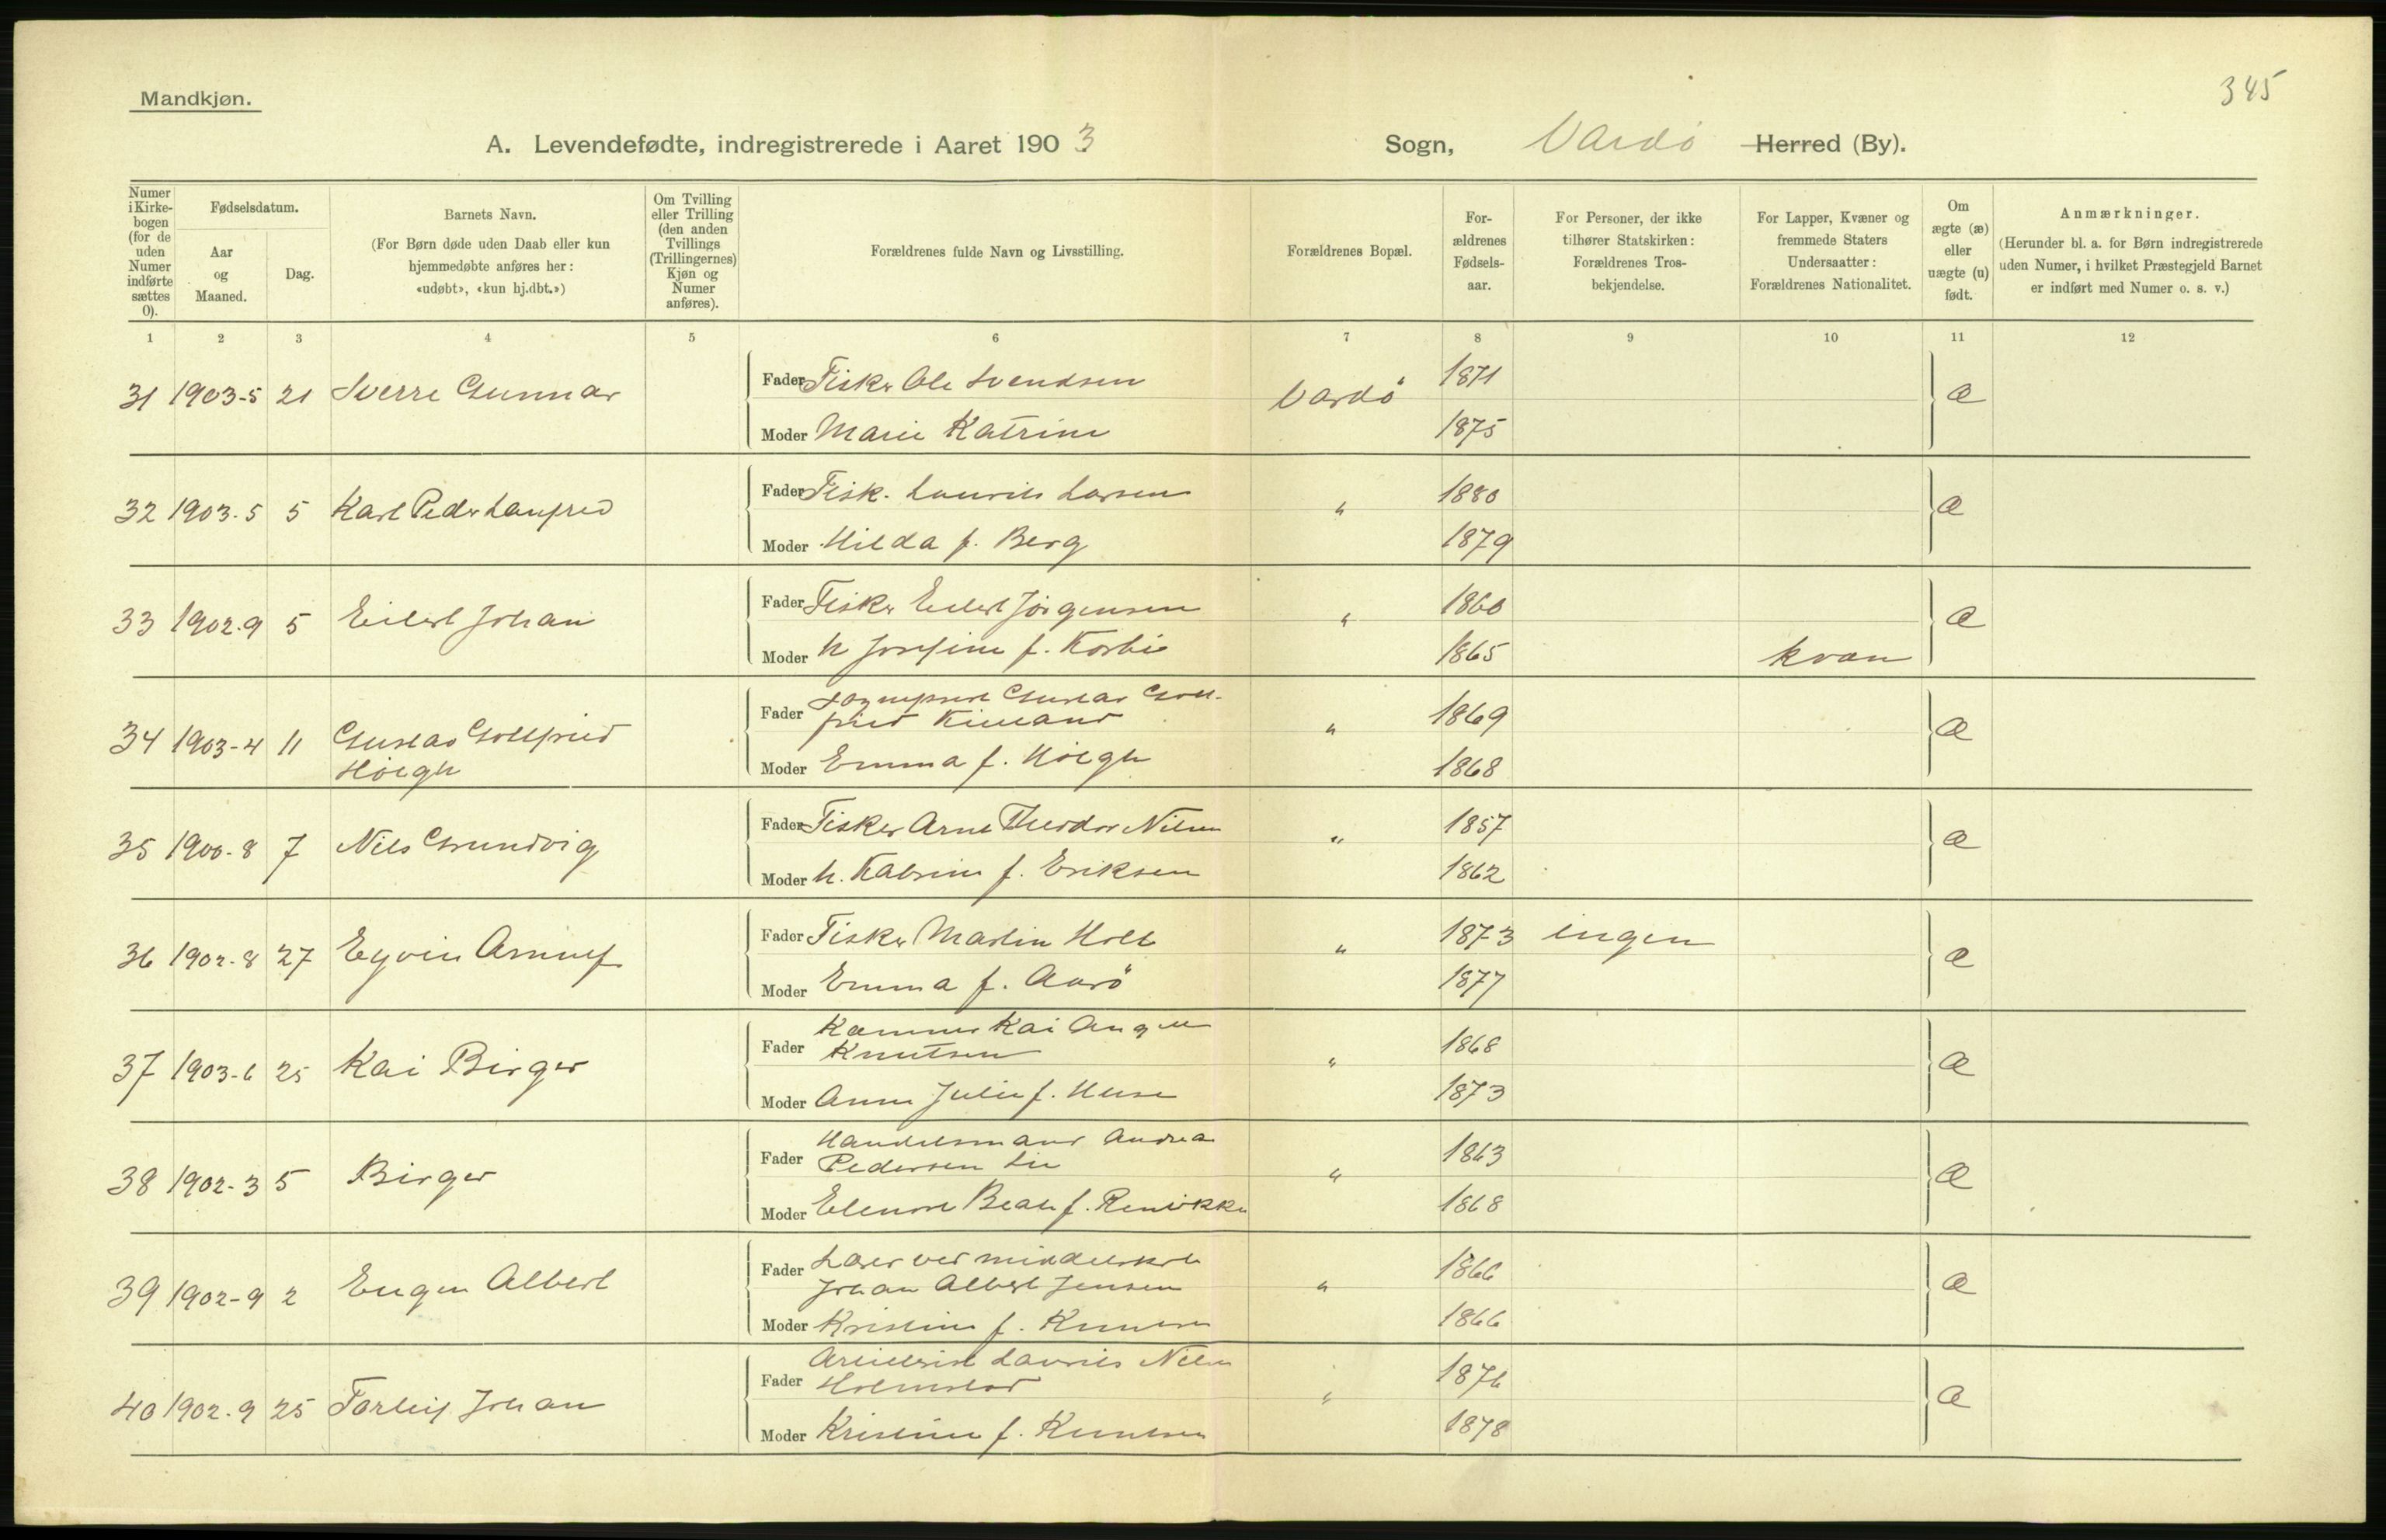 345
Mandkjøn.
A. Levendefødte, indregistrerede i Aaret 1903
Sogn, Vardö Herred (By).
Numer i Kirke-bogen (for de uden Numer indførte sættes 0).
Fødselsdatum.
Aar og Maaned.
Dag.
Barnets Navn.
(For Børn døde uden Daab eller kun hjemmedøbte anføres her: «udøbt», «kun hj.dbt.»)
Om Tvilling eller Trilling (den anden Tvillings (Trillingernes) Kjøn og Numer anføres).
Forældrenes fulde Navn og Livsstilling.
Forældrenes Bopæl.
For-ældrenes Fødsels-aar.
For Personer, der ikke tilhører Statskirken: Forældrenes Tros-bekjendelse.
For Lapper, Kvæner og fremmede Staters Undersaatter: Forældrenes Nationalitet.
Om ægte (æ) eller uægte (u) født.
Anmærkninger.
(Herunder bl. a. for Børn indregistrerede uden Numer, i hvilket Præstegjeld Barnet er indført med Numer o. s. v.)
1 2 3 4 5 6 7 8 9 10 11 12
31 1903-5 21 Sverre Gunnar Fader Fisker Ole Svendsen Vardö 1871 æ
Moder Marie Katrine 1875
32 1903.5 5 Karl Peder Fader Fisk. Laurits Larsen " 1880 æ
Moder Hilda f. Berg 1879
33 1902.9 5 Eilert Johan Fader Fisker Eilert Jörgensen " 1860 æ
Moder h Josefine f. 1865 kvæn
34 1903-4 11 Gustav Gottfried Fader Gustav Gott-
Höegh fried 1869 " æ
Moder Emma f. Höegh 1868
35 1900-8 7 Nils Grundvig Fader Fisker Arne Theodor Nilsen " 1857 æ
Moder h. Katrine f. Eriksen 1862
36 1902-8 27 Eyvin Arnulf Fader Fisker Martin Holt " 1873 ingen æ
Moder Emma f. Aarö 1877
37 1903-6 25 Kai Birger Fader Kæmner Kai
Knutsen " 1868 æ
Moder Anna Julie f. 1873
38 1902-3 5 Birger Fader Handelsmand Andrea
Pedersen Lie " 1863 æ
Moder Elenore Beate f. 1868
39 1902-9 2 Eugen Albert Fader Lærer ved middelskole
Johan Albert Jensen " 1866 æ
Moder Kristine f. Knutsen 1866
40 1902.9 25 Torleif Johan Fader Laurits Nilsen
Holmstad " 1876 æ
Moder Kristine f. Knutsen 1878